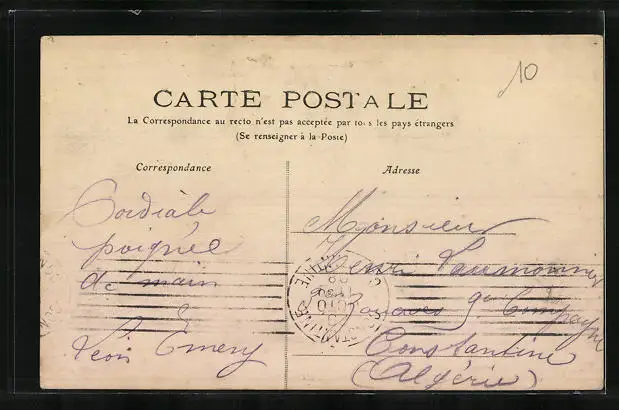 10
CARTE POSTALE
La Correspondance au recto n'est pas acceptée par tous les pays étrangers
(Se renseigner à la Poste)
Correspondance
Adresse
Cordiale
poignée
de main
Léon Emery
Monsieur
Henri
Zouaves 9e Compagnie
Constantine
(Algérie)
CONSTANTINE